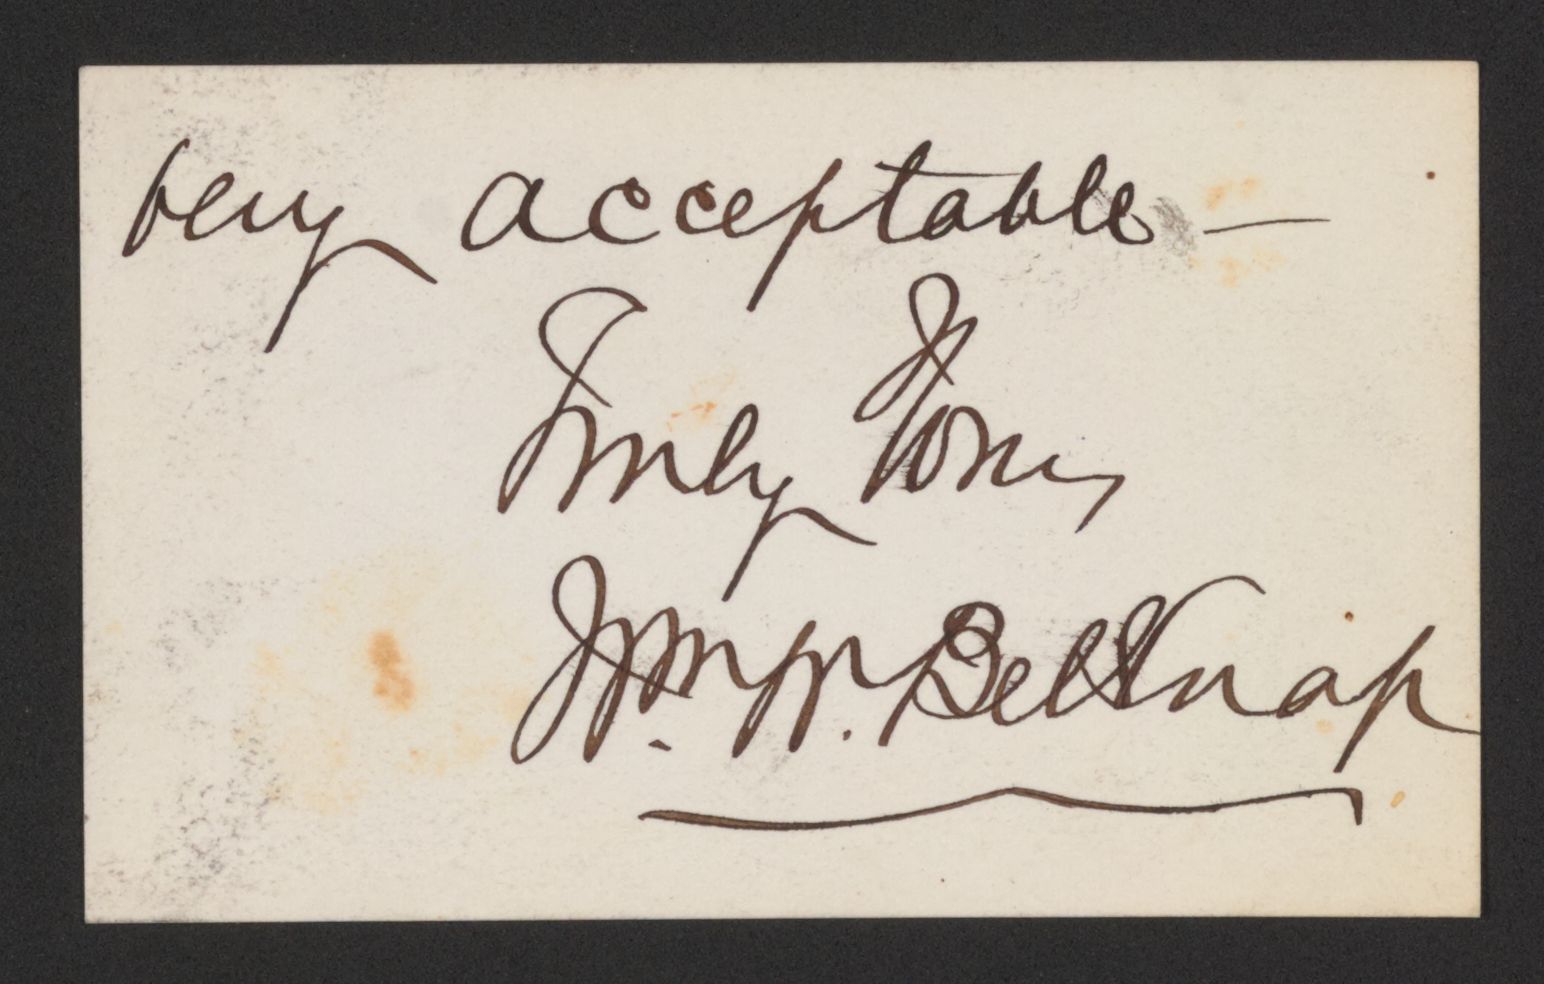 very acceptable —
Truly Yours,
Wm. W. Belknap